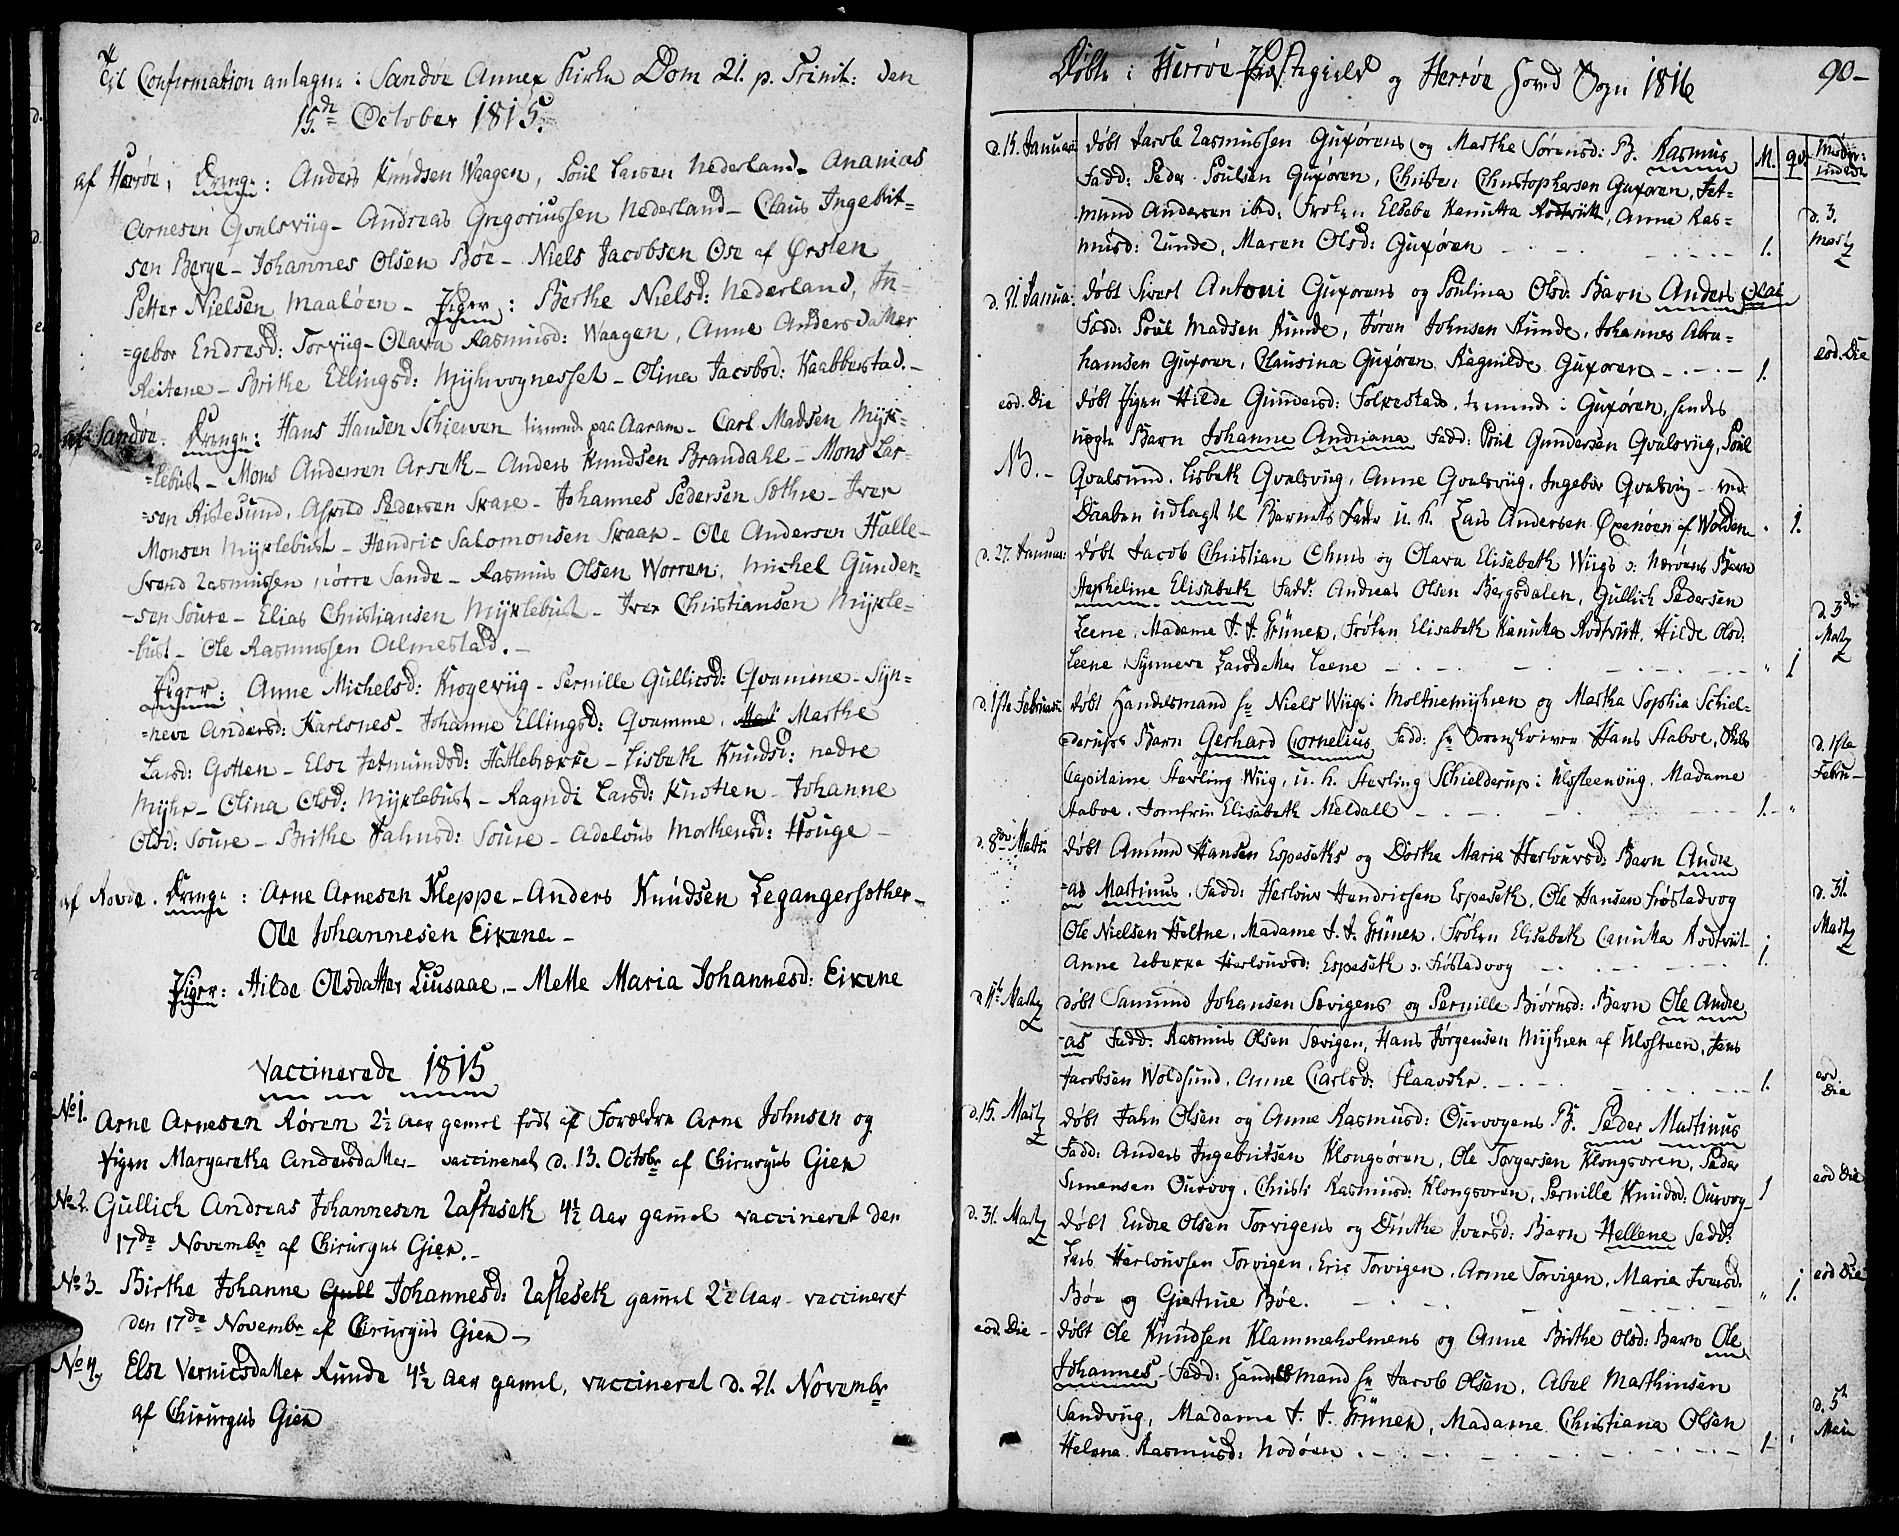 Til Confirmation antagne i Sandøe Annex Kirke Dom 21. p. Trinit: den
15de October 1815.
af Herrøe, Drenge: Anders Knudsen Waagen, Poül Larsen Nederland - Ananias
Arnesen Qvalsviig - Andreas Gregoriussen Nederland - Claus Ingebrit-
sen Berge - Johannes Olsen Bøe - Niels Jacobsen Ose af Ørsten
Petter Nielsen Maaløen - Piger: Berthe Nielsd: Nederland, In-
=gebor Endresd: Torviig - Olava Rasmusd: Waagen, Anne Andersdatter
Reitene - Brithe Ellingsd: Myhrvognesset - Olina Jacobsd: Kaabberstad. -
af Sandøe. Drenge: Hans Hansen Schierven tienende paa Aaram - Carl Madsen Myk-
=lebust - Mons Andersen Arseth - Anders Knudsen Brandahl - Mons Lar-
=sen Ristesund, Ahfred Pedersen Skare - Johannes Pedersen Sæthre - Iver
Monsen Myklebust - Hendric Salomonsen Skaar - Ole Andersen Halle -
Svend Rasmussen nørre Sande - Rasmus Olsen Worren, Michel Gunder-
-sen Soure - Elias Christiansen Myklebust - Iver Christiansen Mykle-
-bust - Ole Rasmussen Almestad. -
Piger: Anne Michelsd: Krogeviig - Pernille Gullicsd: Qvamme - Syn-
=neve Andersd: Karlsnes - Johanne Ellingsd: Qvamme, Marthe
Larsd: Gotten - Else Jetmundsd: Hattlebrekke - Lisbeth Knudsd: nedre
Myhr - Olina Olsd: Myklebust - Ragndi Larsd: Knotten - Johanne
Olsd: Soure - Brithe Jahnsd: Soure - Adelous Morthensd: Houge -
af Rovde. Drenge: Arne Arnesen Kleppe - Anders Knudsen Legangersother -
Ole Johannesen Eikene -
Piger: Hilde Olsdatter Liusaae - Mette Maria Johannesd: Eikene
Vaccinerede 1815
No 1. Arne Arnesen Røren 2½ Aar gamel født af Forældre Arne Johnsen og
Pigen Margaretha Andersdatter - vaccineret d. 13. Octobr af Chirurgus Gien
No 2. Gullich Andreas Johannesen Rafteseth 4½ Aar gamel vaccineret den
17de Novembr af Chirurgus Gien. -
No 3 - Birthe Johanne Gull Johannesd: Rafteseth gamel 2½ Aar - vaccineret
den 17de Novembr af Chirurgus Gien -
No 4, Else Vernicsdatter Runde 4½ Aar gamel, vaccineret d. 21. Novembr
af Chirurgus Gien
Døbte i Herrøe Præstegield og Herrøe Hoved Sogn 1816 90 -
M. qv.
d. 15. Januar døbt Jacob Rasmussen Guxørens og Marthe Sørensd: B. Rasmus
Fadd: Peder Poulsen Guxøren, Christen Christophersen Guxøren, Jet-
mund Andersen ibid: Frøken Elsebe Kanutta Rodtvitt, Anne Ras- d. 3.
musd: Runde, Maren Olsd: Guxøren - - - 1. Martz
d. 21. Janua: døbt Sivert Antoni Guxorens og Poulina Olsd: Barn Anders Olai
Fadd: Poul Madsen Runde, Jøren Johnsen Runde, Johannes Abra-
hamsen Guxoren, Clausina Guxøren Ragnilde Guxoren - - - 1. eod. Die
eod. Die døbt Pigen Hilde Gundersd: Folkestad, tienende i Guxøren, hendes
uægte Barn Johanne Andriana Fadd: Poul Gundersen Qvalsviig, Poul
NB. - Qvalsund, Lisbeth Qvalsviig, Anne Qvalsviig, Ingebor Qvalsviig - ved
Daaben udlagt til Barnets Fader u. k. Lars Andersen Øxenøen af Wolden - 1.
d. 27. Januar: døbt Jacob Christian Ohms og Olava Elisabeth Wiigs i Nærøens Barn
Hepheline Elisabeth Fadd: Andreas Olsen Bergsdalen, Gullich Pedersen d. 3de
Leene, Madame J. J. Grünek, Frøken Elisabeth Kanutta Rodtvitt, Hilde Olsd: Martz
Leene, Synneve Larsdatter Leene - - - " 1
d. 1ste Februar: døbt Handelsmand hr Niels Wiigs i Moltuemyhren og Martha Sophia Schiel-
=derups Barn Gerhard Cornelius, Fadd: hr Sorenskriver Hans Staboe, Skibs d. 1ste
Capitaine Sterling Wiig, u. k. Sterling Schielderup i Ulfsteenviig, Madame Febru -
Staboe, Jomfrue Elisabeth Meldall - - - 1. - "
d. 8de Martz døbt Amund Hansen Espeseths og Dorthe Maria Herlouvsd: Barn Andre
=as Martinus, Fadd: Herlouv Hendrichsen Espeseth, Ole Hansen Frøstadvog d. 31.
Ole Nielsen Heltne, Madame J. J. Grünek, Frøken Elisabeth Canutta Rodtvit - Martz
Anne Rebekka Herlouvsd: Espeseth i Frøstadvog - - - 1.
d. 11te Martz døbt Samund Johansen Sævigens og Pernille Biørnsd: Barn Ole Andre
-as Fadd: Rasmus Olsen Sævigen, Hans Jørgensen Myhren af Ulfsteen, Jens
Jacobsen Woldsund, Anne Carlsd: Flaavehr. - - - 1. eod Die
d. 15. Martz døbt Jahn Olsen og Anne Rasmusd: Ourvogens B. Peder Martinus
Fadd: Anders Ingebritsen Klongsøren, Ole Torgersen Klongsoren, Peder
Simensen Ourvog, Christi Rasmusd: Klongsoren, Pernille Knudsd: Ourvog - 1 eod Die
d. 31. Martz døbt Endre Olsen Torvigens og Dorthe Iversd: Barn Hellene Fadd:
Lars Herlouvsen Torvigen, Eric Torvigen, Arme Torvigen, Maria Iversd: eod Die
Bøe og Giertrue Bøe. - - - " 1.
eod. Die - døbt Ole Knudsen Klammeholmens og Anne Birthe Olsd: Barn Ole
Johannes - Fadd: Handelsmand hr Jacob Olsen, Abel Marthinsen
Sandviig, Madame J. J. Grünek, Madame Christiana Olsen d. 5te
Helena Rasmusd: Nodøen. - - - 1 - Maii